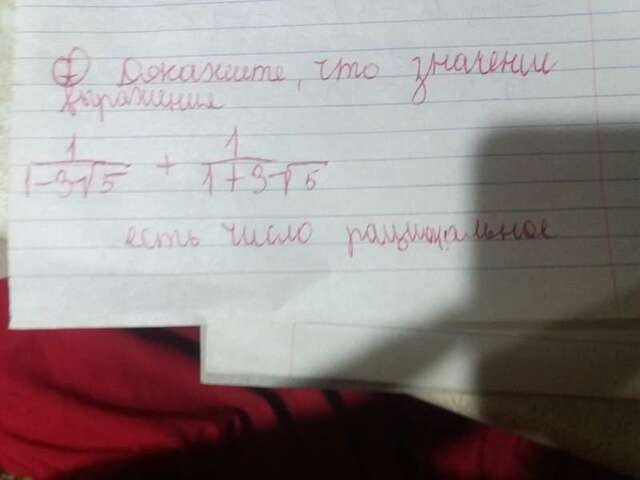 ① Докажите, что значение
выражения
1/(1-3√5) + 1/(1+3√5)
есть число рациональное